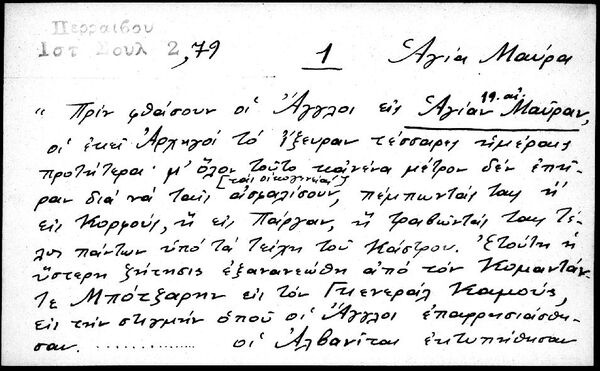 Περραιβου
Ιστ Σουλ 2,79 1 Ἁγία Μαύρα
19. αἰ.
" Πρίν φθάσουν οἱ Ἄγγλοι εἰς Ἁγίαν Μαῦραν,
οἱ ἐκεῖ Ἀρχηγοί τό ἤξευραν τέσσαρες ἡμέραις
προτήτερα· μ' ὅλον τοῦτο κανένα μέτρον δέν ἐπῆ-
[ταῖς οἰκογενείαις]
ραν διά νά ταῖς ἀσφαλίσουν, πέμπωντάς ταις ἤ
εἰς Κορφούς, ἤ εἰς Πάργαν, ἤ τραβῶντάς ταις τέ-
λος πάντων ὑπό τά τείχη τοῦ Κάστρου. Ἐτούτη ἡ
ὕστερη ζήτησις ἐξανανεώθη ἀπό τόν Κομαντάν-
τε Μπότζαρην εἰς τόν Γκενεράλ Καμούς,
εἰς τήν στιγμήν ὁποῦ οἱ Ἄγγλοι ἐπαρρησιάσθη-
σαν. .............. οἱ Ἀλβανῖται ἐκτυπήθησαν